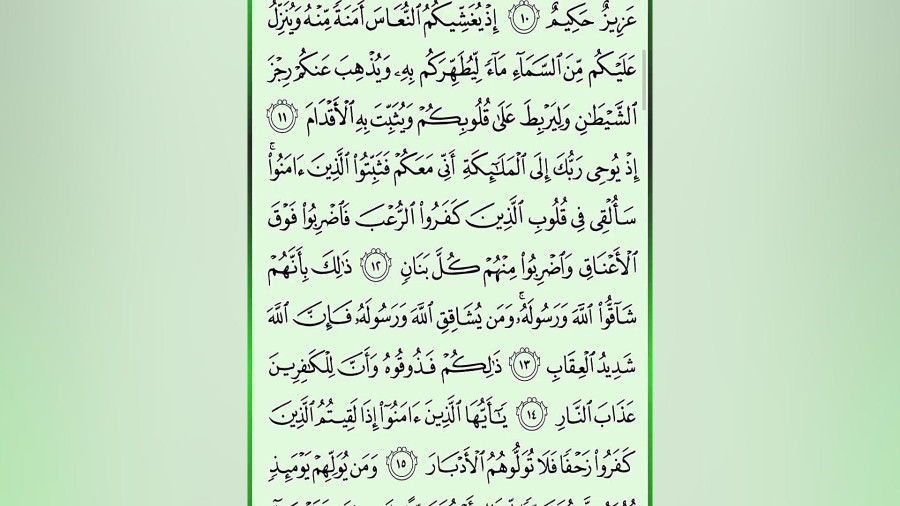 عَزِيزٌ حَكِيمٌ ١٠ إِذْ يُغَشِّيكُمُ ٱلنُّعَاسَ أَمَنَةً مِّنْهُ وَيُنَزِّلُ
عَلَيْكُم مِّنَ ٱلسَّمَآءِ مَآءً لِّيُطَهِّرَكُم بِهِۦ وَيُذْهِبَ عَنكُمْ رِجْزَ
ٱلشَّيْطَٰنِ وَلِيَرْبِطَ عَلَىٰ قُلُوبِكُمْ وَيُثَبِّتَ بِهِ ٱلْأَقْدَامَ ١١
إِذْ يُوحِى رَبُّكَ إِلَى ٱلْمَلَٰٓئِكَةِ أَنِّى مَعَكُمْ فَثَبِّتُوا۟ ٱلَّذِينَ ءَامَنُوا۟ۚ
سَأُلْقِى فِى قُلُوبِ ٱلَّذِينَ كَفَرُوا۟ ٱلرُّعْبَ فَٱضْرِبُوا۟ فَوْقَ
ٱلْأَعْنَاقِ وَٱضْرِبُوا۟ مِنْهُمْ كُلَّ بَنَانٍ ١٢ ذَٰلِكَ بِأَنَّهُمْ
شَآقُّوا۟ ٱللَّهَ وَرَسُولَهُۥۚ وَمَن يُشَاقِقِ ٱللَّهَ وَرَسُولَهُۥ فَإِنَّ ٱللَّهَ
شَدِيدُ ٱلْعِقَابِ ١٣ ذَٰلِكُمْ فَذُوقُوهُ وَأَنَّ لِلْكَٰفِرِينَ
عَذَابَ ٱلنَّارِ ١٤ يَٰٓأَيُّهَا ٱلَّذِينَ ءَامَنُوٓا۟ إِذَا لَقِيتُمُ ٱلَّذِينَ
كَفَرُوا۟ زَحْفًا فَلَا تُوَلُّوهُمُ ٱلْأَدْبَارَ ١٥ وَمَن يُوَلِّهِمْ يَوْمَئِذٍ